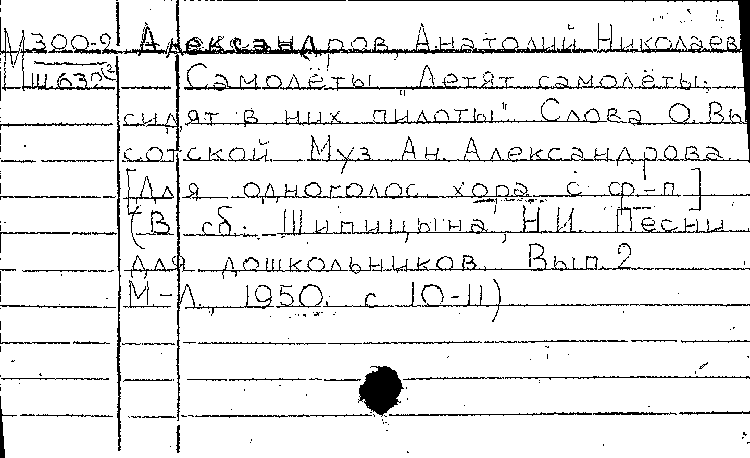 М300-2 Александров, Анатолий Николаев
Ш632 Самолёты "Летят самолёты,
сидят в них пилоты". Слова О. Вы
сотской Муз Ан. Александрова.
[Для одноголос. хора с ф-п]
(В сб.: Шипицына, Н.И. Песни
для дошкольников. Вып. 2
М-Л., 1950. с 10-11)